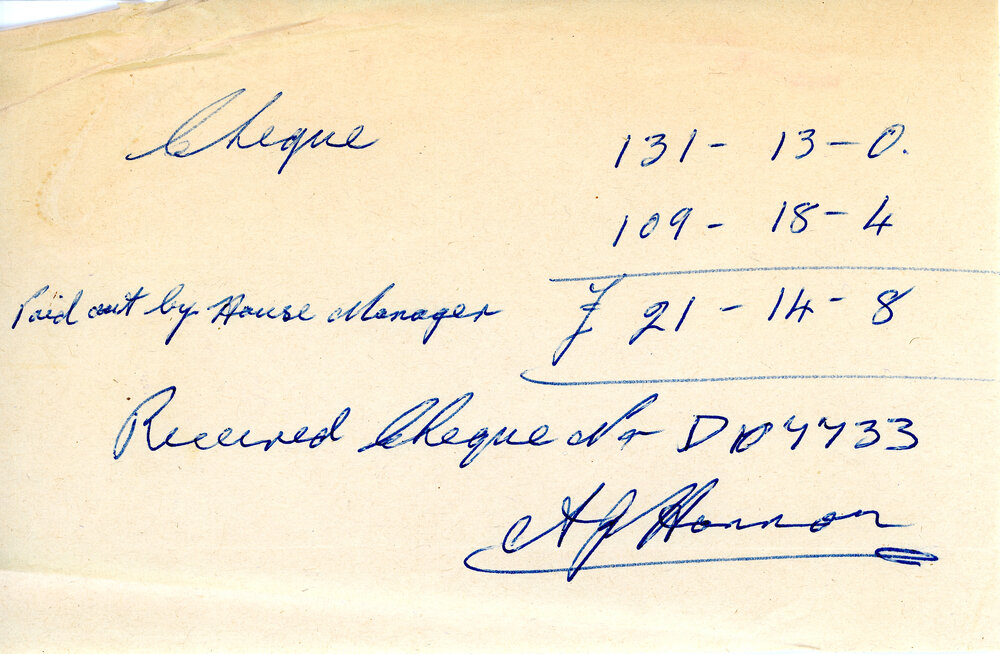 Cheque 131 - 13 - 0.
109 - 18 - 4
Paid out by House Manager £ 21 - 14 - 8
Received Cheque No D
A J Hannon